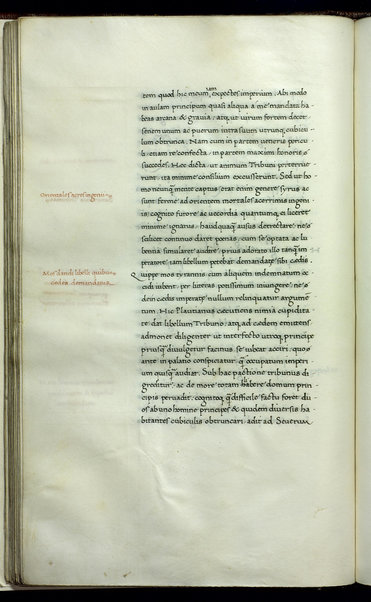 tem quod hic meum iam expectes imperium. Abi modo
in aulam principum quasi aliqua a me mandata ha
beas arcana & gravia, atq; ut virum fortem decet
senem unum ac puerum intra suum utrunq; cubicu
lum obtrunca. Nam cum in partem veneris pericu
li, etiam re confecta, in partem maximi honoris
succedes. Hec dicta, ut animum Tribuni perterrue
runt, ita minime consilium excusserunt. Sed ut ho
mo neutiq; mente captus, erat enim genere syrus ac
sunt ferme ad orientem mortales acerrimis ingeni
is, cognito furore ac vecordia quantumq; ei liceret
minime ignarus, haudquaq; ausus detrectare, ne
scilicet continuo daret poenas, cum se optata ac lu
bentia simularet audire, prius adorato illo tanq; im
peratore, iam libellum petebat demandatae sibi caedis.
Orientales acres ingenii
Mos dandi libelli quibus
caedes demandatur
Quippe mos tyrannis cum aliquem indemnatum oc
cidi iubent, per litteras potissimum iniungere, ne
dein caedes imperatae nullum relinquatur argume
tum. Hic Plautianus caecutiens nimia cupidita
te dat libellum Tribuno, atq; ad caedem emittens
admonet diligenter ut interfecto utroq; principe
priusq; divulgetur facinus se iubeat acciri, quo
ante in palatio conspiciatur q; occupatum imperi
um quisq; audiat. Sub hac pactione tribunus di
greditur, ac de more totam libere domum prin
cipis pervadit, cognitoq; q; difficile factu foret du
os ab uno homine principes & quidem diversis ha
bitantes cubiculis obtruncari, adit ad Severum